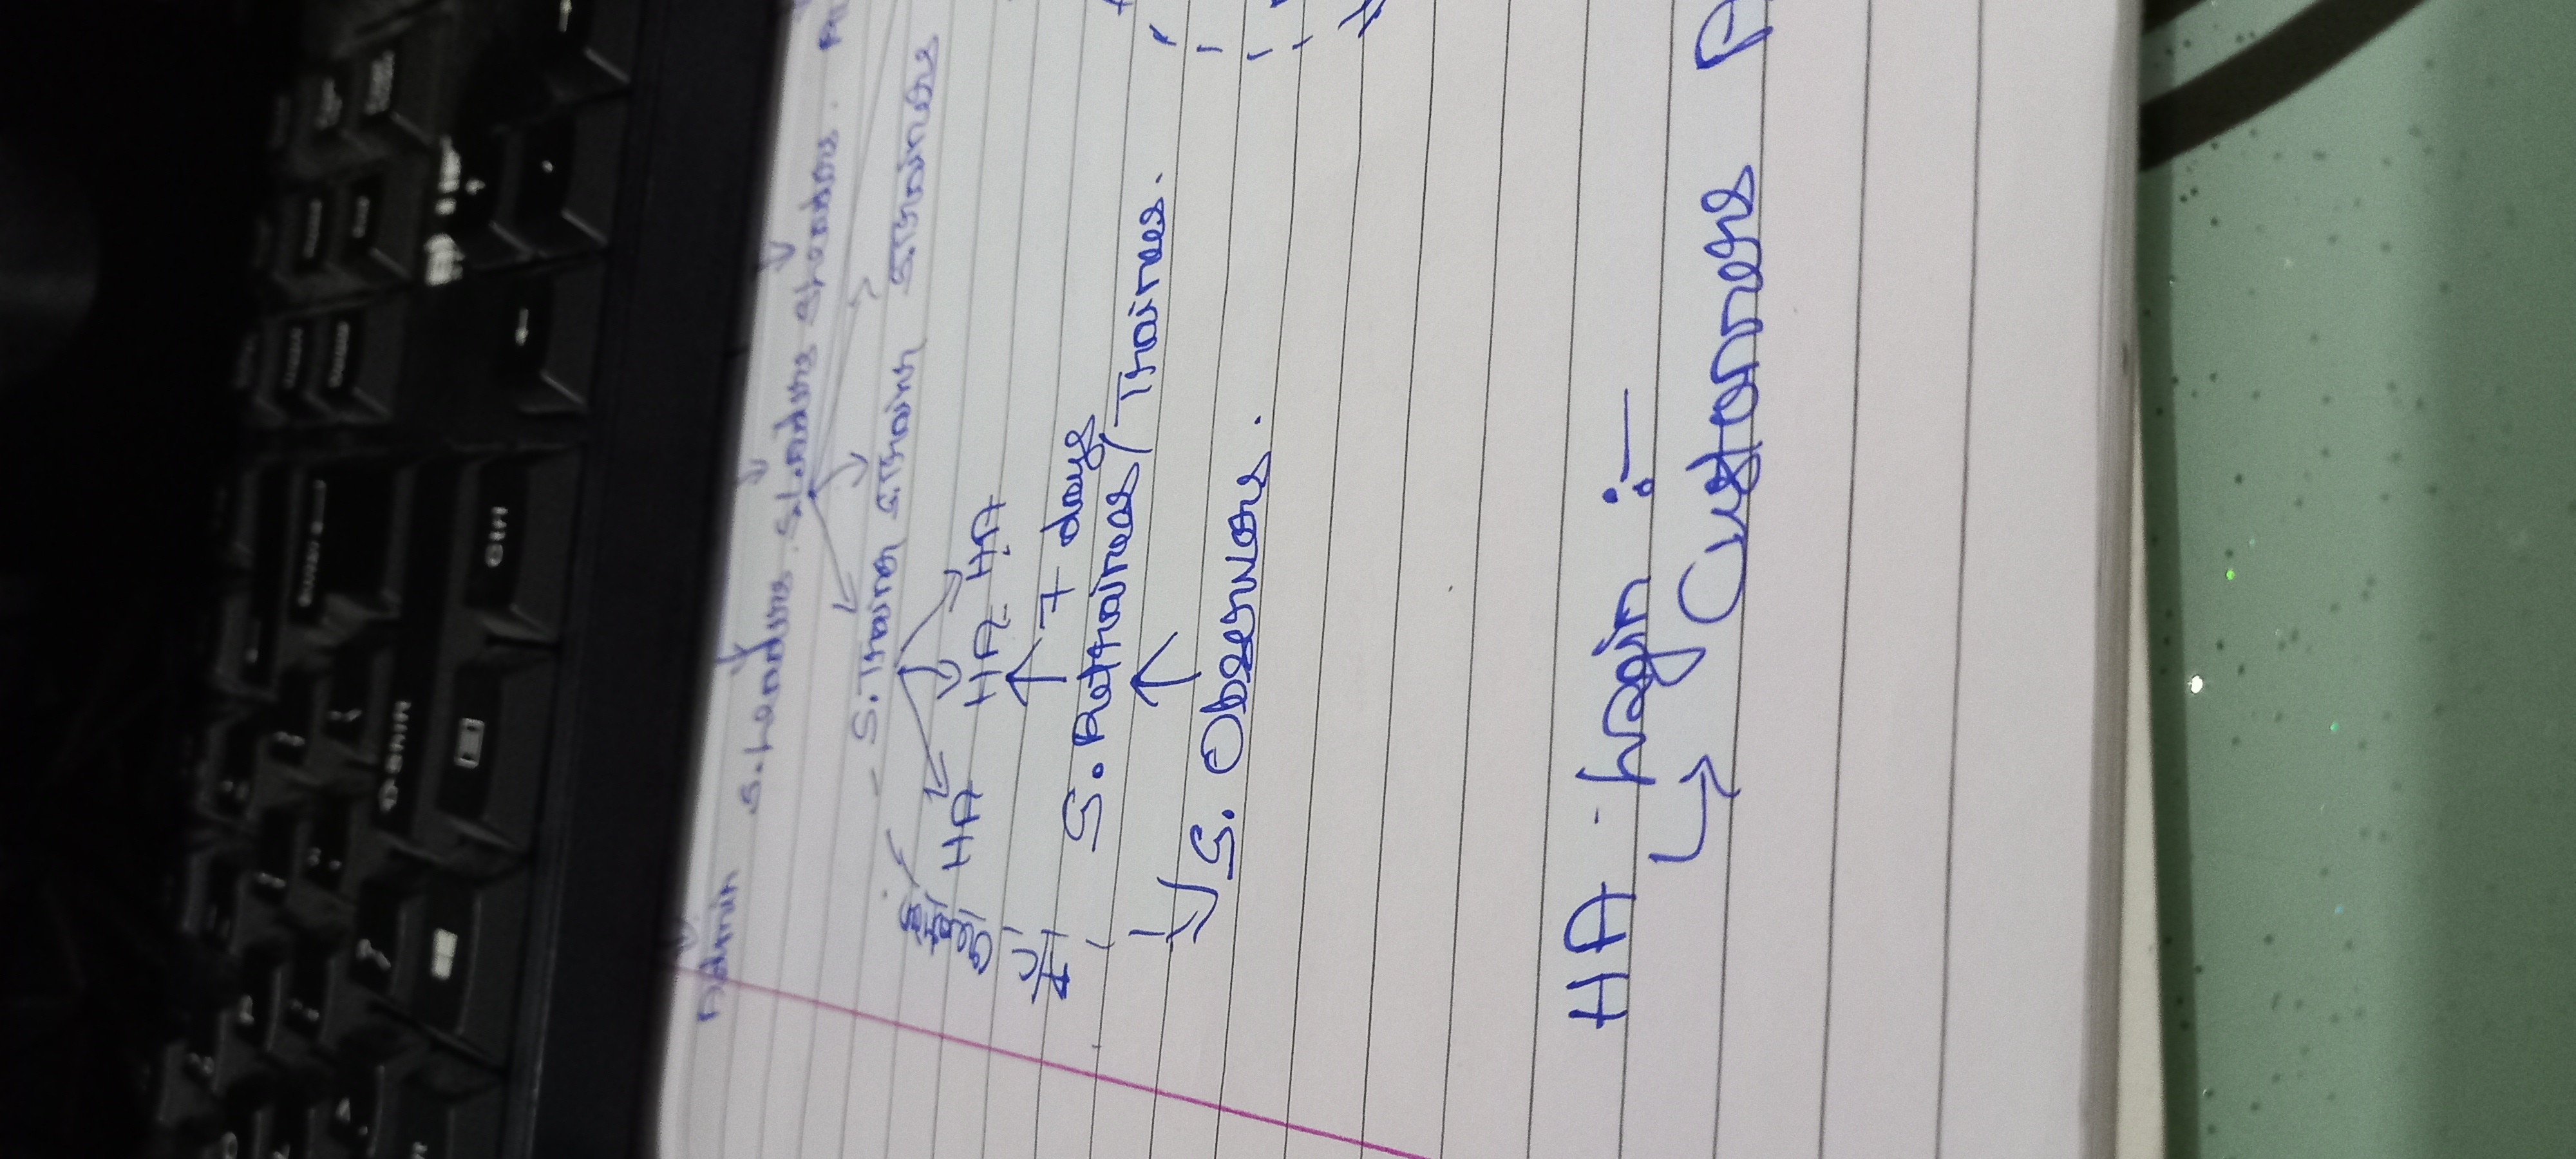 Shift
Ctrl
Admin S.Leaders S.Leaders S.Leaders
S.Trainer S.Trainer S.Trainers
HA HA HA
A/C
7 days
S. Retrainees/Trainees.
S. Observors.
HA Login :-
Customers